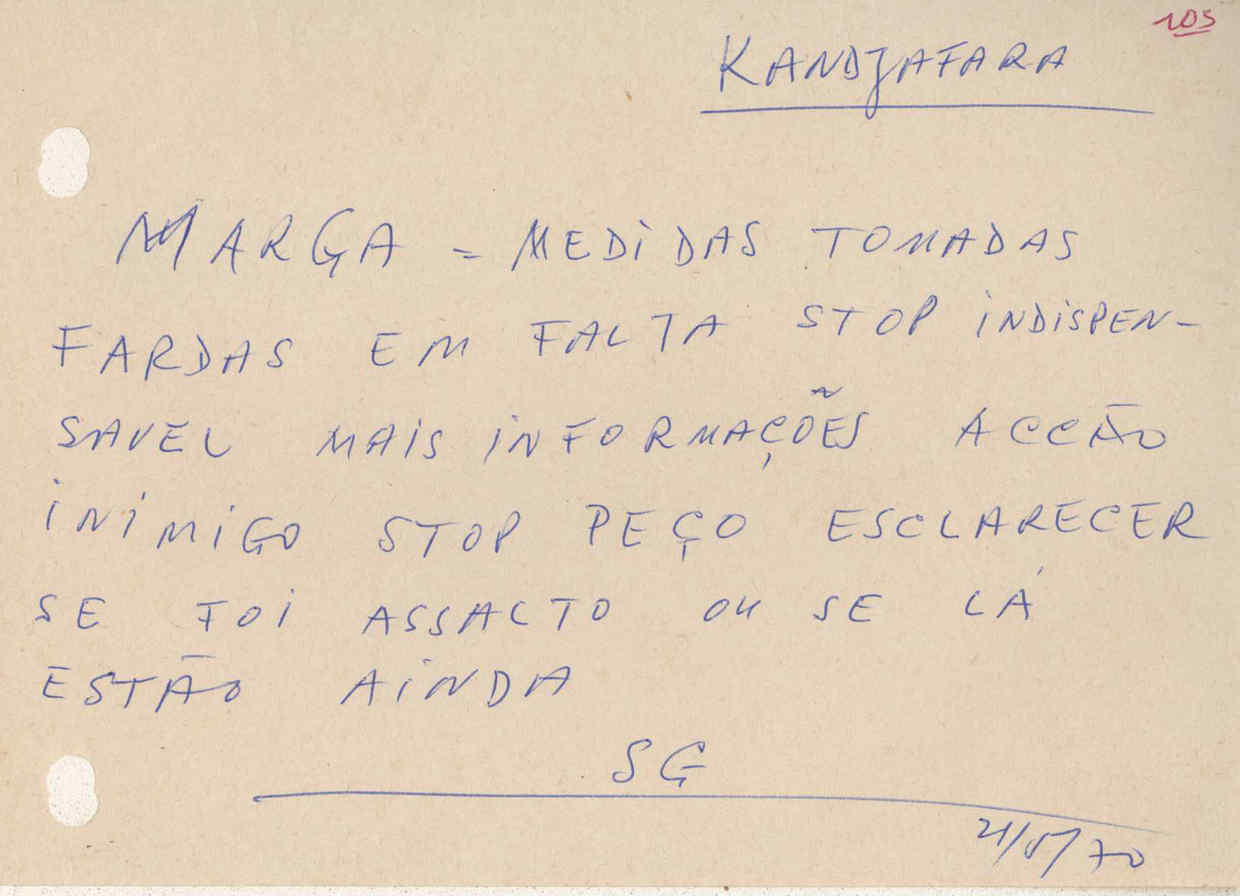 105
KANDJAFARA
MARGA = MEDIDAS TOMADAS
FARDAS EM FALTA STOP INDISPEN-
SAVEL MAIS INFORMAÇÕES ACCÃO
INIMIGO STOP PEÇO ESCLARECER
SE FOI ASSALTO OU SE LÁ
ESTÃO AINDA
SG
21/5/70